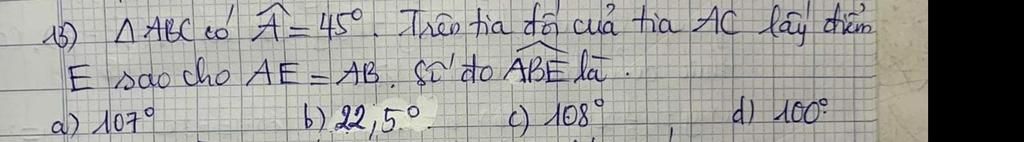 15) Δ ABC có Â = 45°. Trên tia đối của tia AC lấy điểm
E sao cho AE = AB. Số đo ABE là.
a) 107° b) 22,5° c) 108° d) 100°